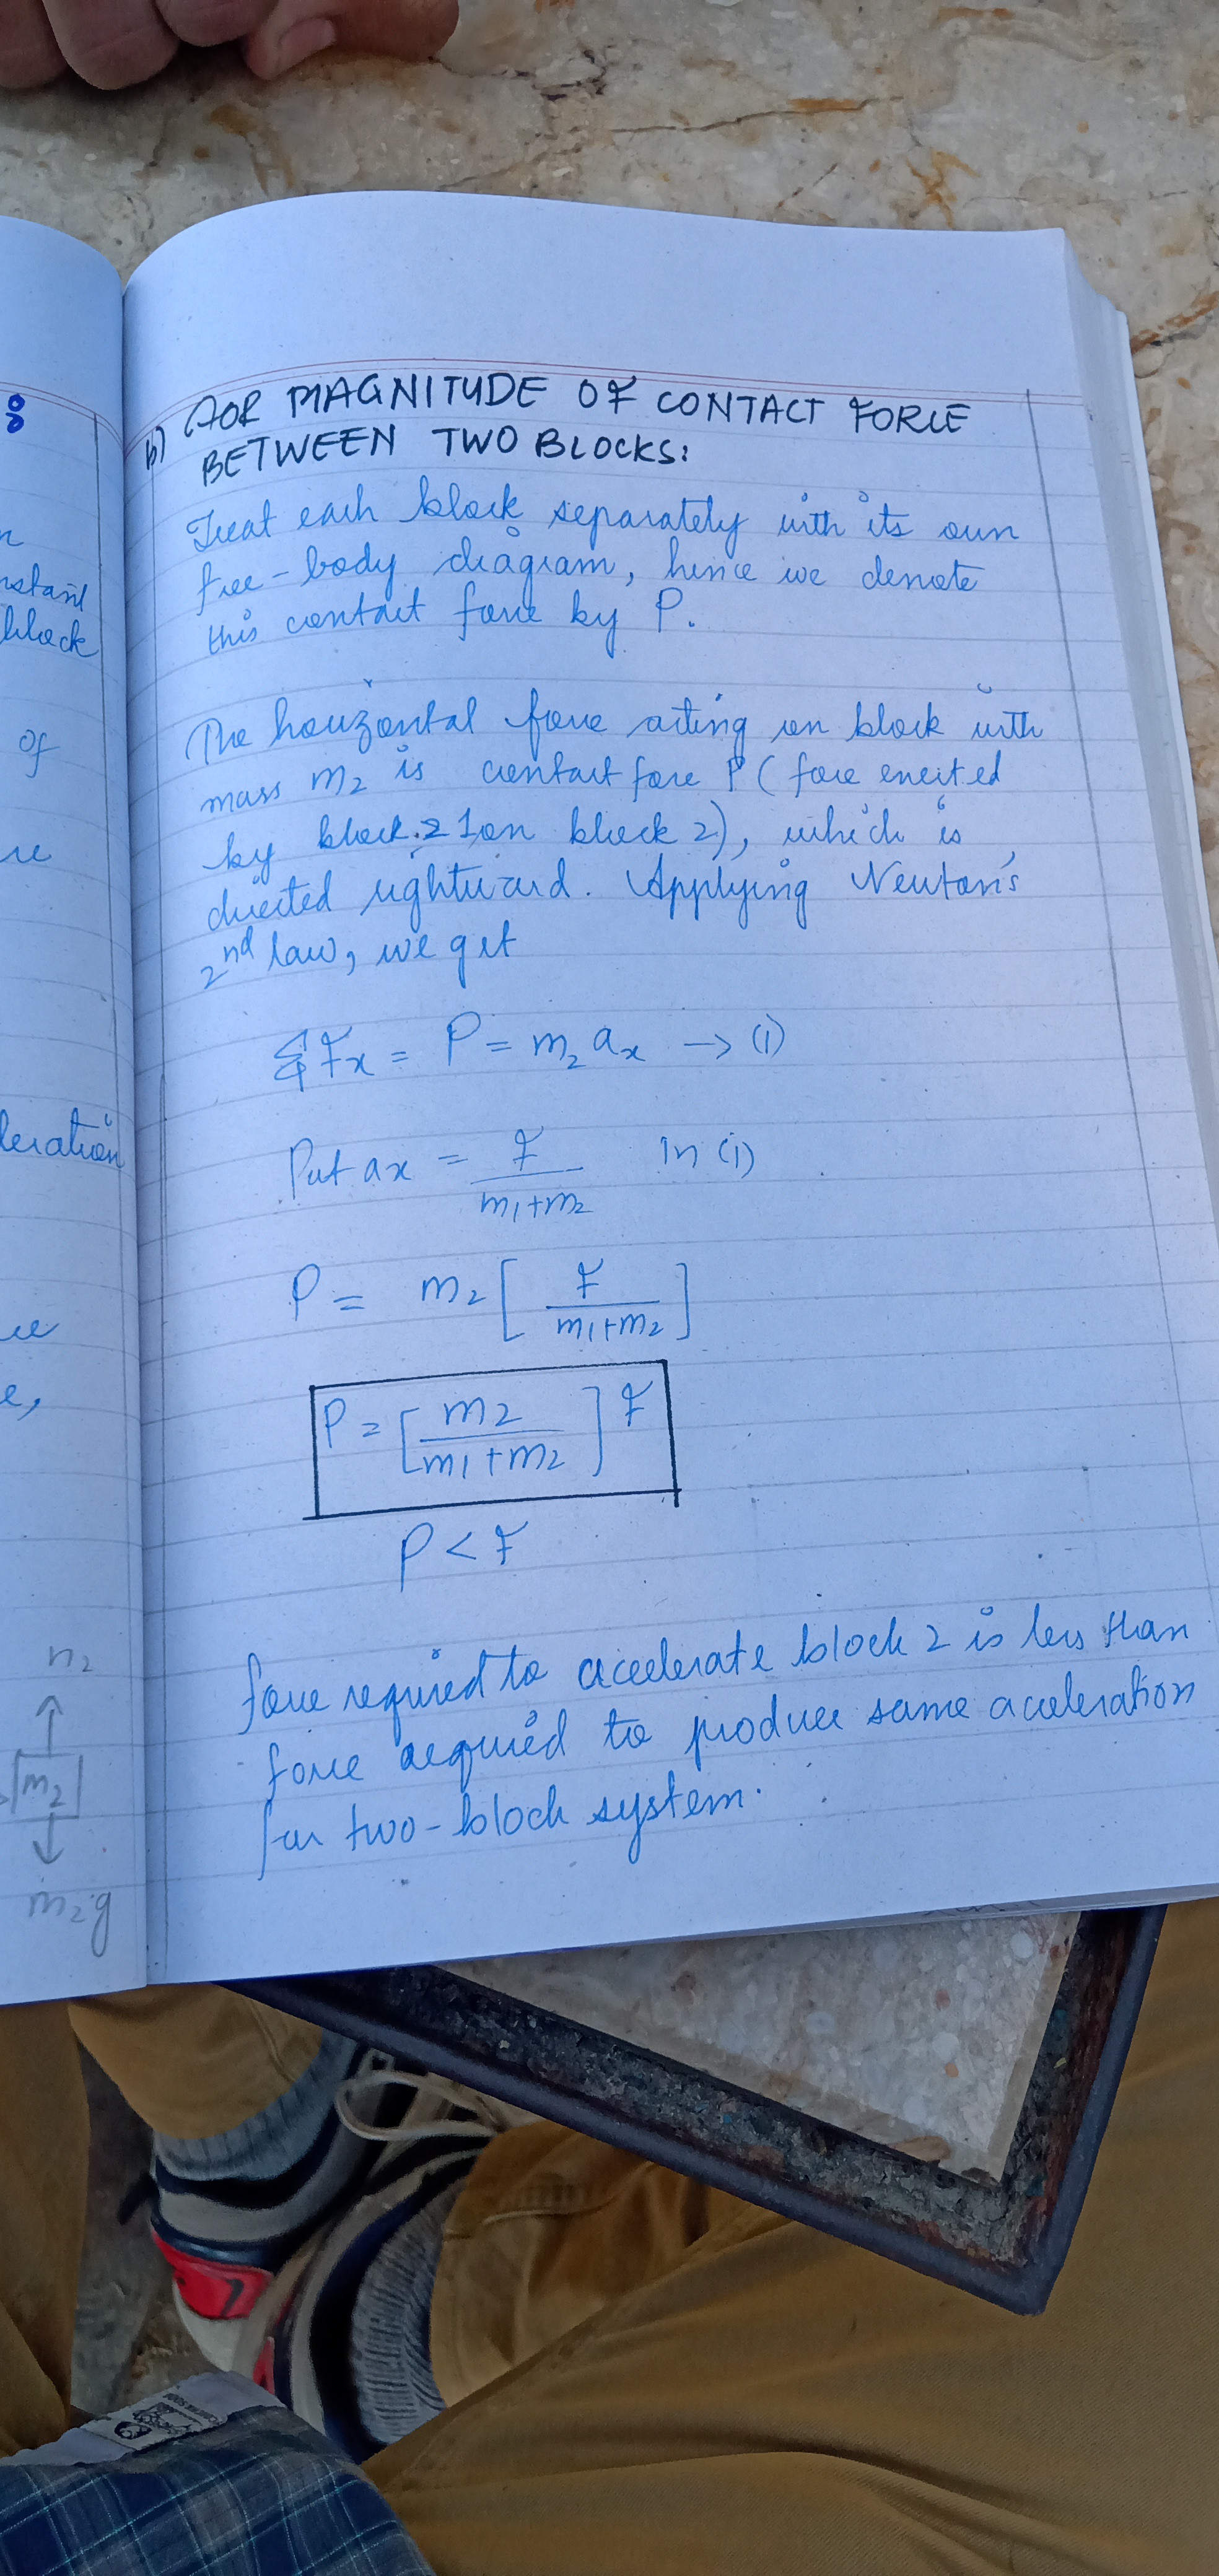 8
n
nstant
block
of
re
leration
re
e,
n₂
m₂
m₂g
b) FOR MAGNITUDE OF CONTACT FORCE
BETWEEN TWO BLOCKS:
Treat each block separately with its own
free-body diagram, hence we denote
this contact force by P.
The horizontal force acting on block with
mass m₂ is contact force P (force exerted
by block 1 on block 2), which is
directed rightward. Applying Newton's
2nd law, we get
ΣFx = P = m₂ ax → (i)
Put ax = F / m₁+m₂ in (i)
P = m₂ [ F / m₁+m₂ ]
P = [ m₂ / m₁+m₂ ] F
P < F
force required to accelerate block 2 is less than
force required to produce same acceleration
for two-block system.